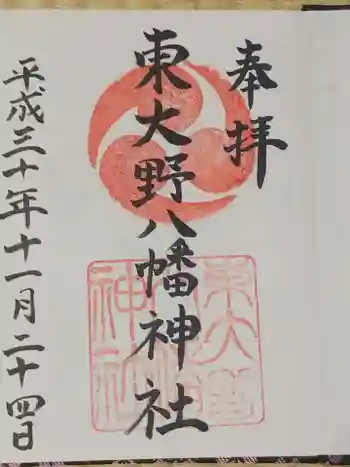 奉拝
東大野八幡神社
平成三十年十一月二十四日